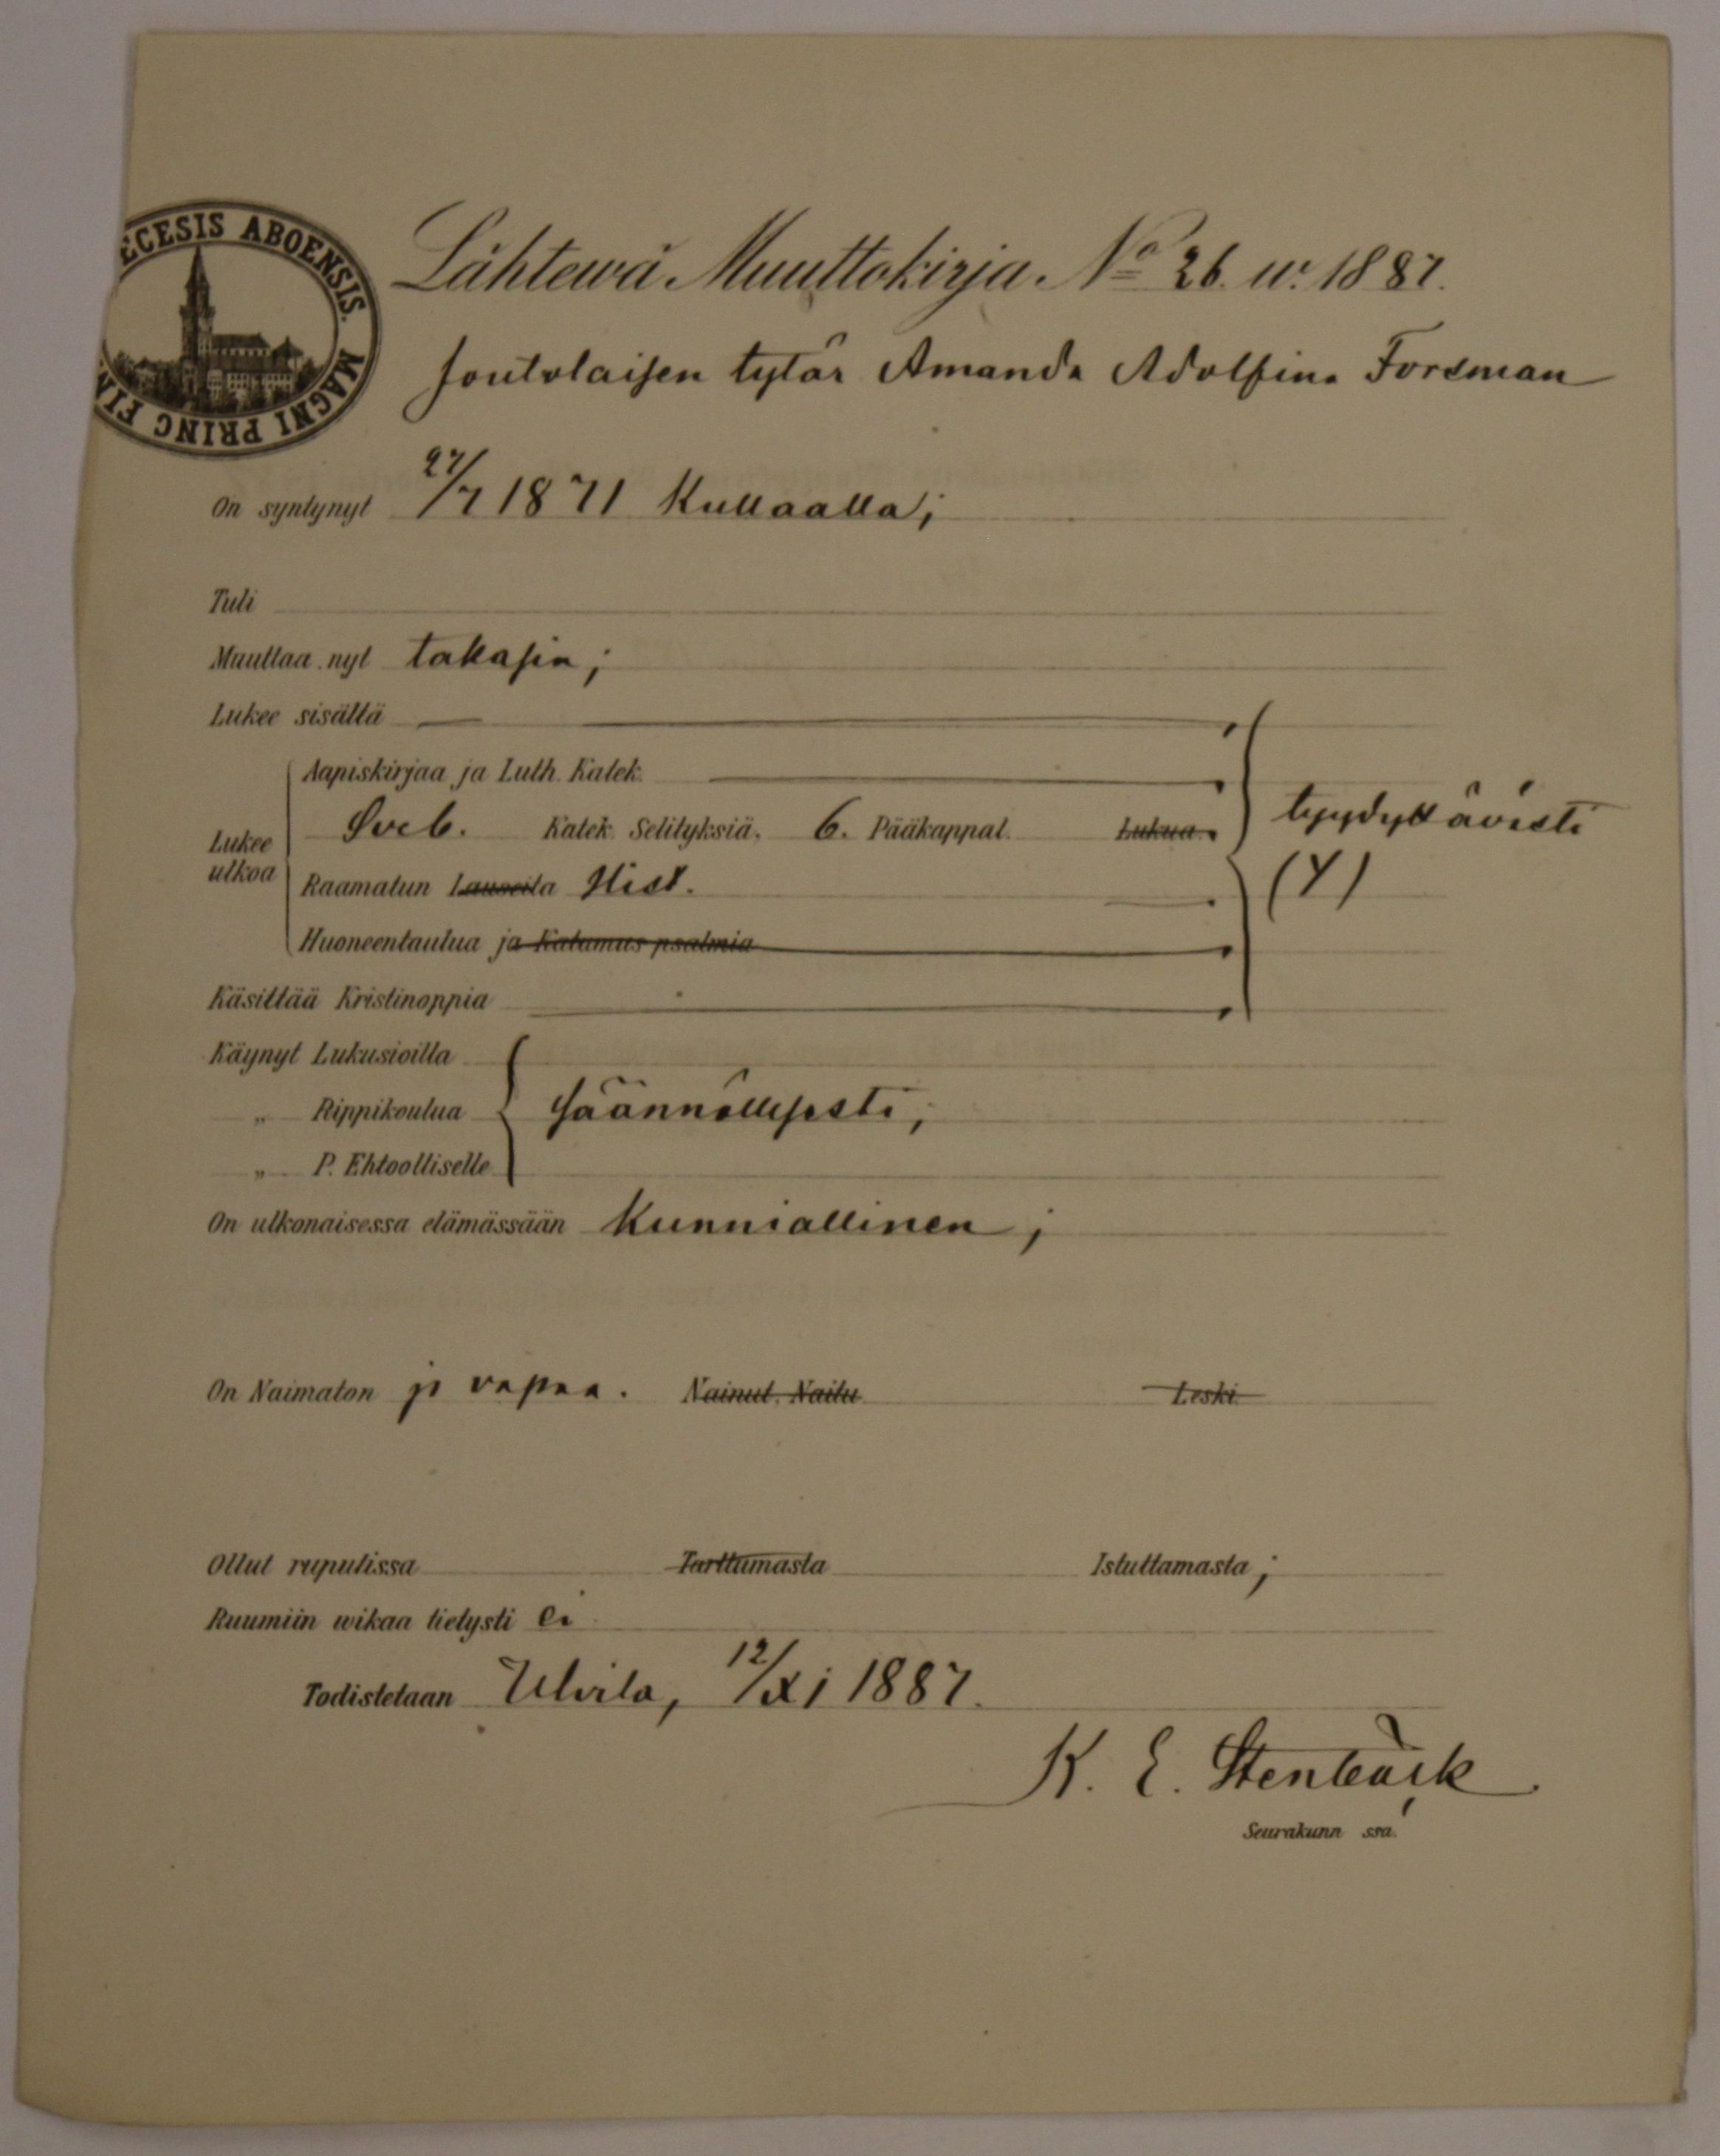 ECESIS ABOENSIS. MAGNI PRINC FIN
Lähtewä Muuttokirja No 26. w. 1887.
Joutolaisen tytär Amanda Adolfina Forsman
On syntynyt 27/7 1871 Kullaalla;
Tuli
Muuttaa nyt takasin;
Lukee sisältä
Aapiskirjaa ja Luth. Katek.
Lukee ulkoa
Sveb. Katek. Selityksiä, 6. Pääkappal. Lukua. tyydyttävästi
Raamatun Lauseita Hist. (Y)
Huoneentaulua ja Katumus psalmia
Käsittää Kristinoppia
Käynyt Lukusioilla
„ Rippikoulua säännöllisesti;
„ P. Ehtoolliselle
On ulkonaisessa elämässään kunniallinen;
On Naimaton ja vapaa. Nainut, Naitu Leski
Ollut rupulissa Tarttumasta Istuttamasta;
Ruumiin wikaa tietysti ei
Todistetaan Ulvila, 12/XI 1887.
K. E. Stenbäck
Seurakunn ssa.